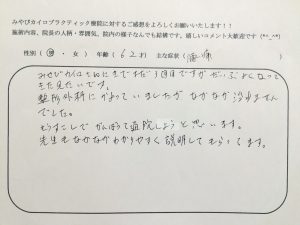 みやびカイロプラクティック療院に対するご感想をよろしくお願いいたします!!
施術内容、院長の人柄・雰囲気、院内の様子なんでも結構です。嬉しいコメント大歓迎です(*^_^*)
性別(男・女) 年齢(62才) 主な症状( 腰痛 )
みやびカイロさんにきてまだ1回目ですがだいぶよくなって
きた見たいです。
整形外科にかよっていましたがなかなか治りません
でした。
もうすこしでがんばって通院しようと思います。
先生もなかなかわかりやすく説明してもらってます。